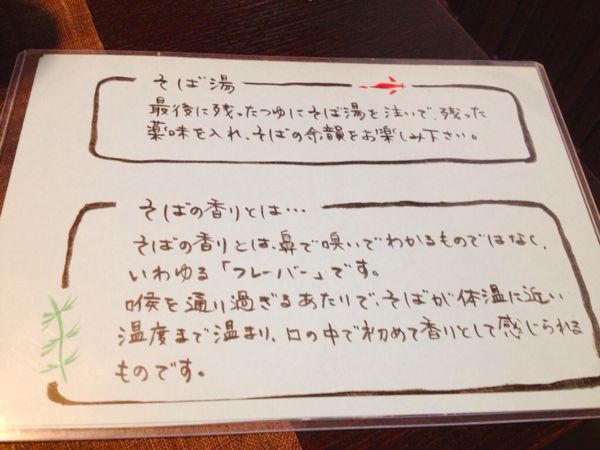 そば湯
最後に残ったつゆにそば湯を注いで、残った
薬味を入れ、そばの余韻をお楽しみ下さい。
そばの香りとは…
そばの香りとは、鼻で嗅いでわかるものではなく、
いわゆる「フレーバー」です。
喉を通り過ぎるあたりで、そばが体温に近い
温度まで温まり、口の中で初めて香りとして感じられる
ものです。